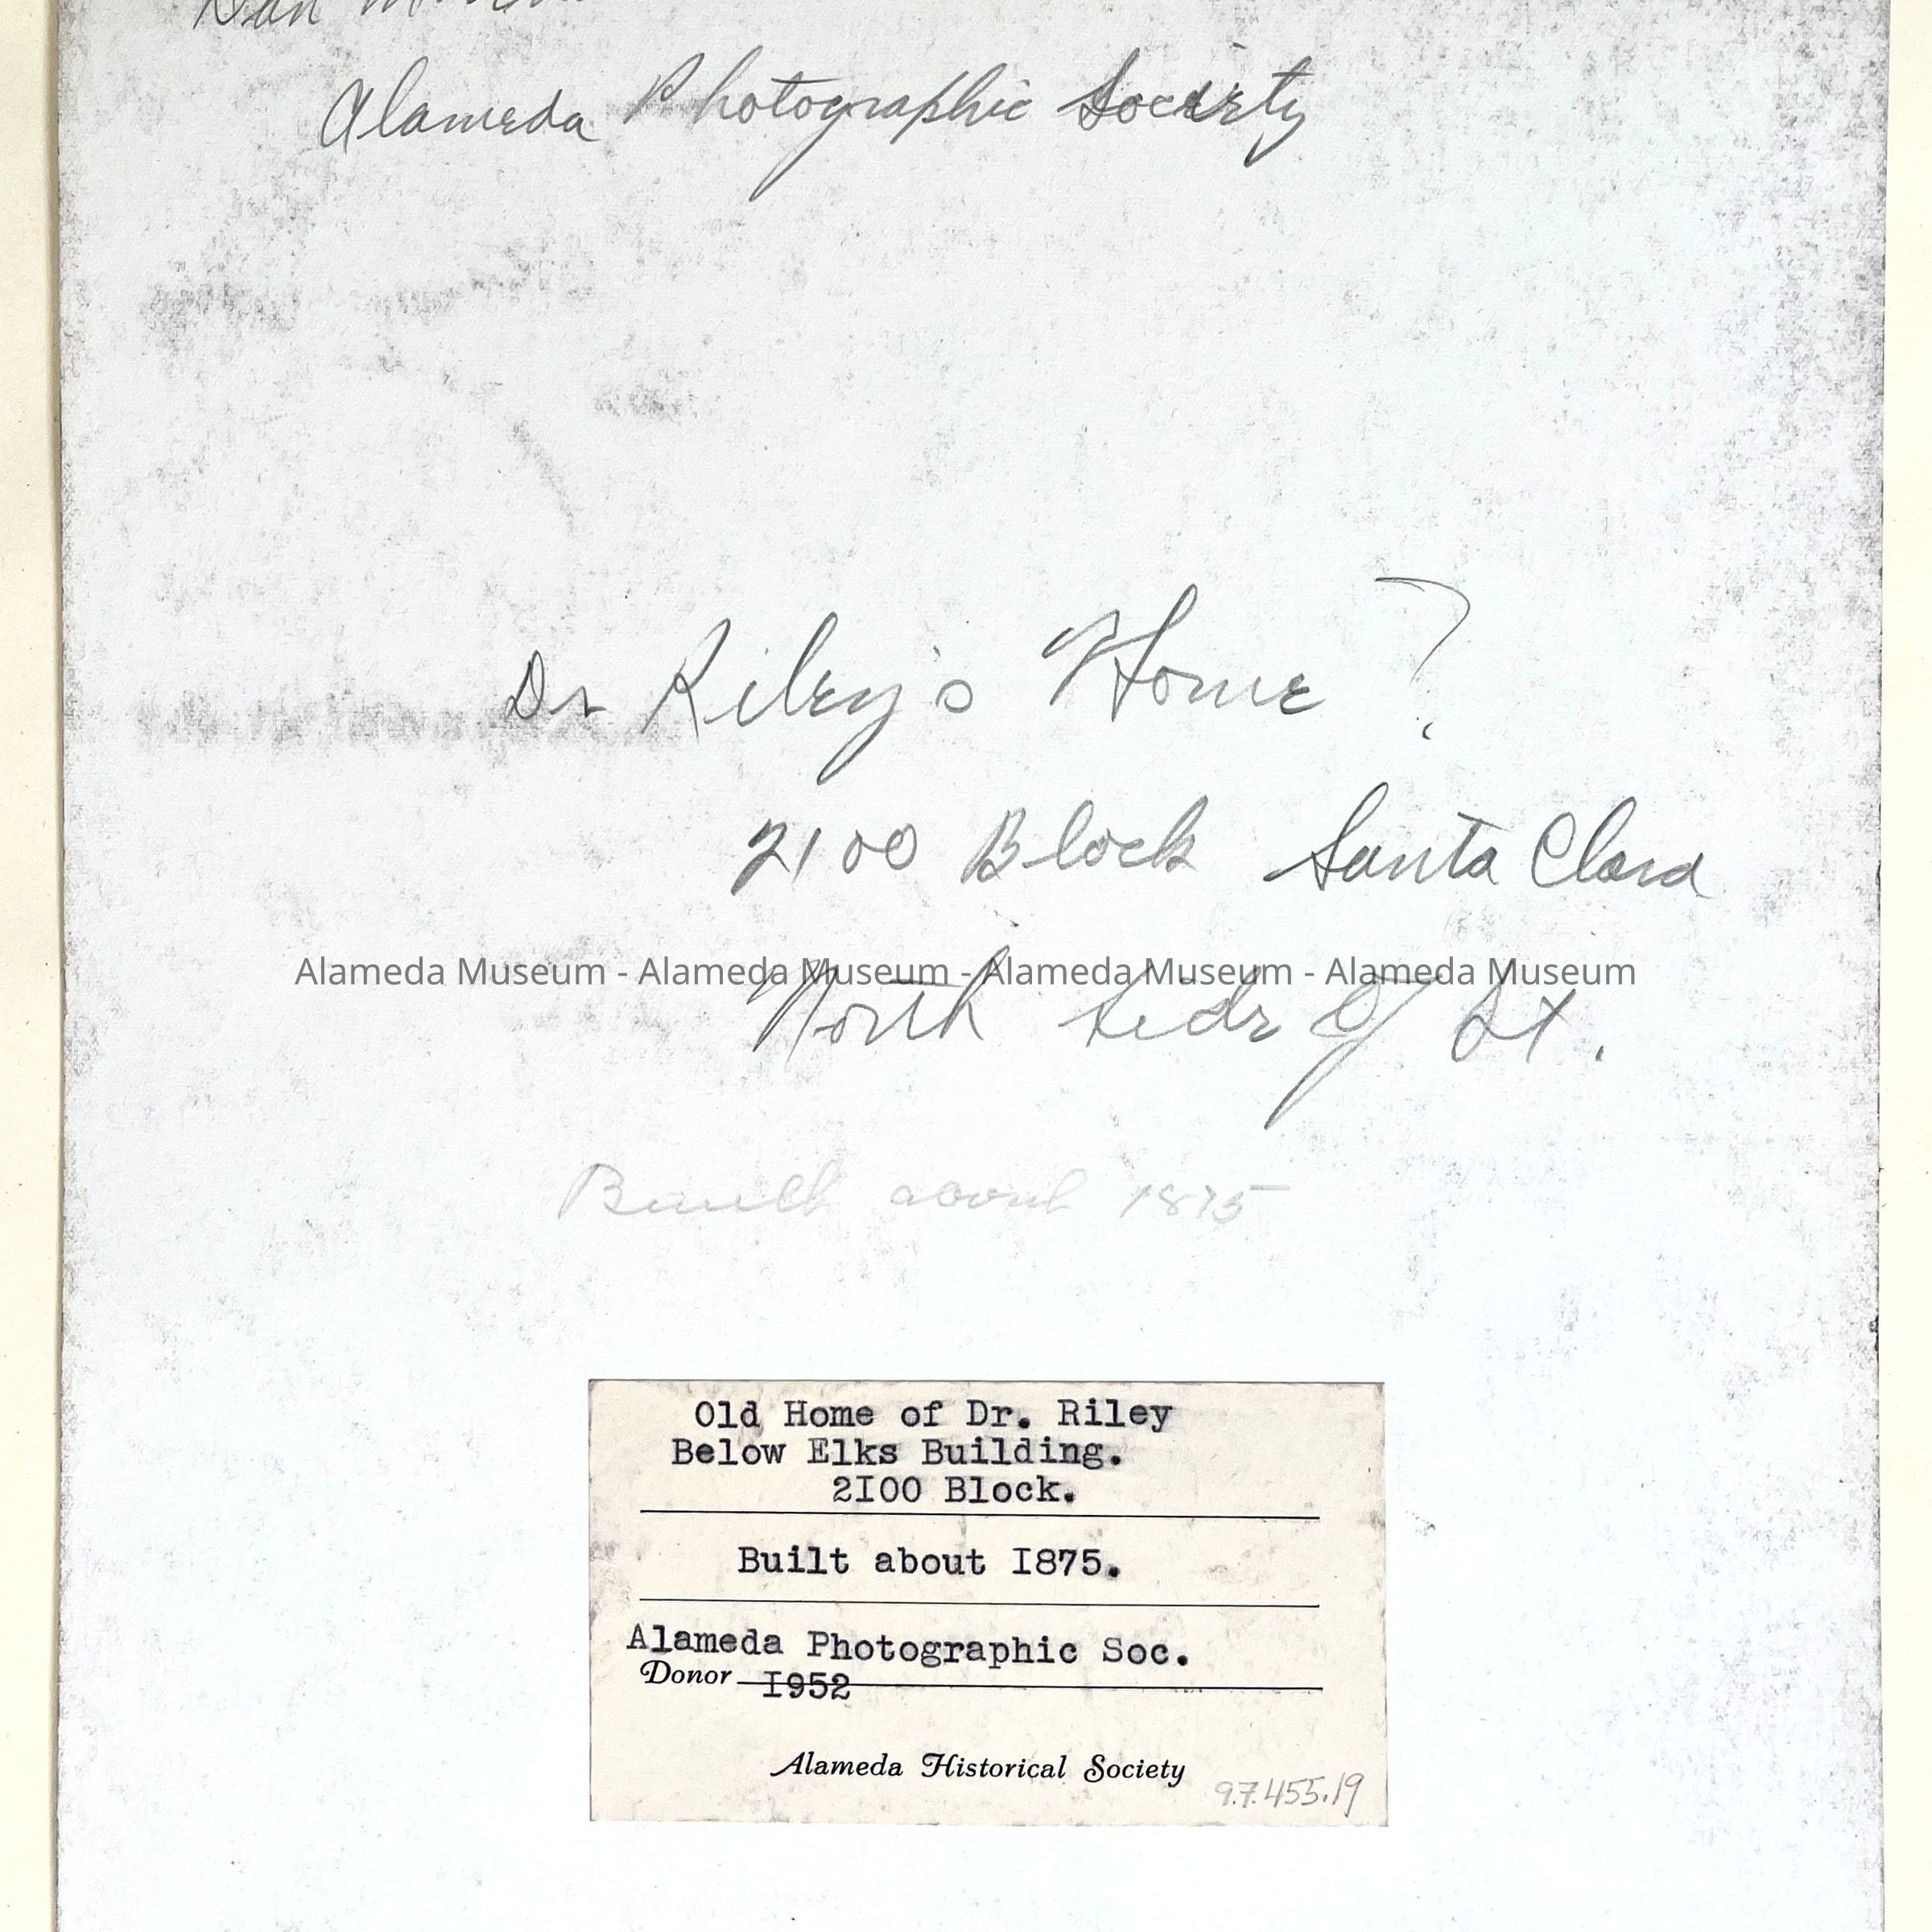 Alameda Photographic Society
Dr Riley's Home ?
2100 Block Santa Clara
Alameda Museum - Alameda Museum - Alameda Museum - Alameda Museum
North Side Of St.
Built about 1875
Old Home of Dr. Riley
Below Elks Building.
2I00 Block.
Built about I875.
Alameda Photographic Soc.
Donor I952
Alameda Historical Society
97.455.19